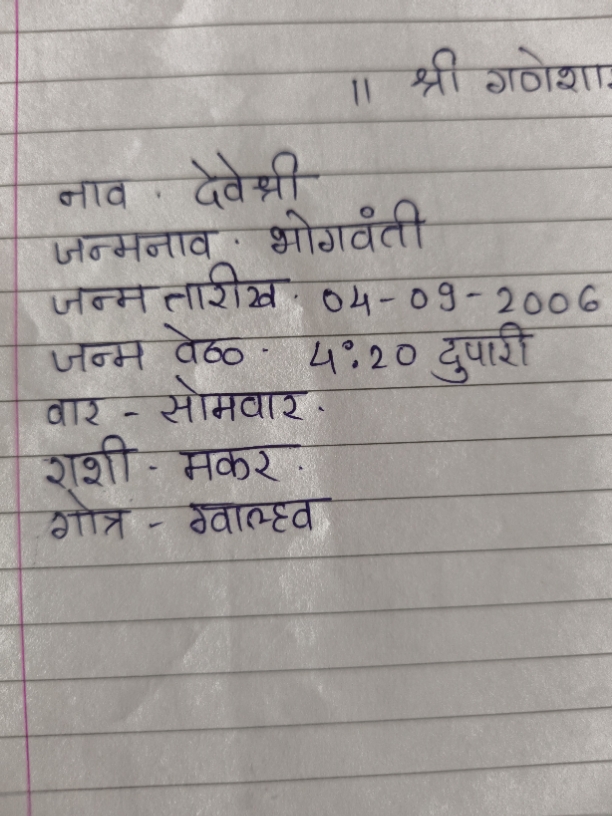 ॥ श्री गणेशाय
नाव . देवेश्री
जन्मनाव . भोगवंती
जन्म तारीख . 04-09-2006
जन्म वेळ . 4:20 दुपारी
वार - सोमवार .
राशी - मकर .
गोत्र -